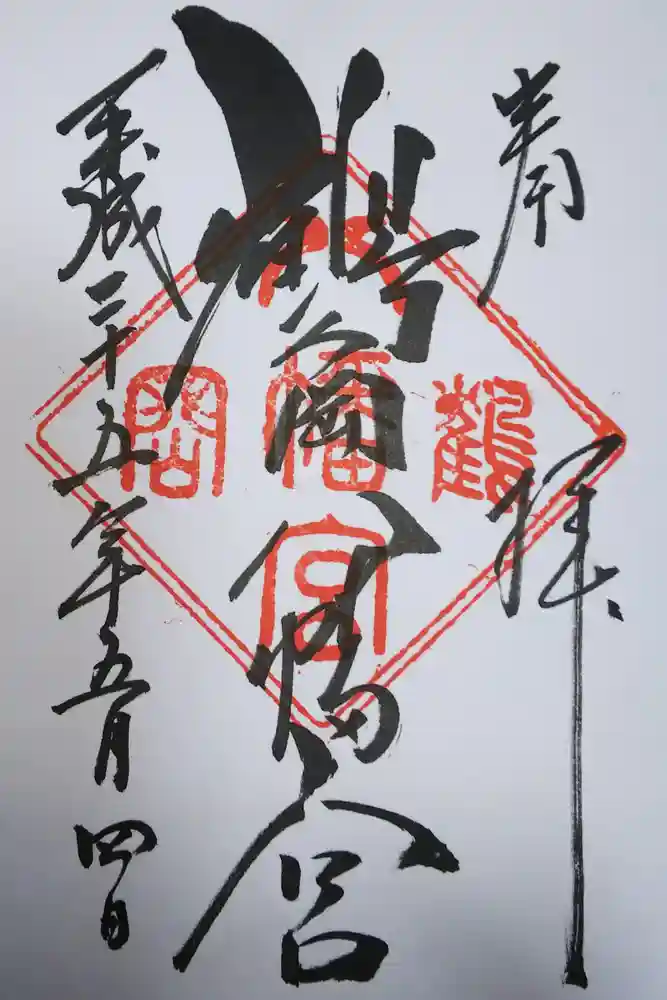 奉拝
鶴岡八幡宮
平成二十五年五月四日
鶴
岡
八幡宮